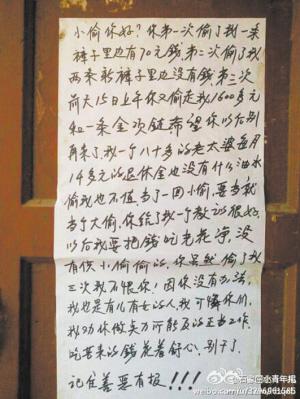 小偷你好?你第一次偷了我一条
裤子里边有70元錢,第二次偷了我
两条新裤子里边没有錢,第三次
前天15日上午你又偷走我1600多元
和一条金项链希望你以后别
再来了,我一个八十多的老太婆每月
1千多元的退休金也没有什么油水
偷我也不值当了一回小偷,要当就
当个大偷,你给了我一个教训很好,
以后我要把錢吃光花净,没
有供小偷偷的,你虽然偷了我
三次我不恨你,因你没有办法,
我也是有儿有女的人我可憐你们,
我劝你做点力所能及的正当工作,
吃苦来的錢花着舒心,别干了,
记住善要有报!!!
@石家庄青年报
weibo.com/u/3796961585